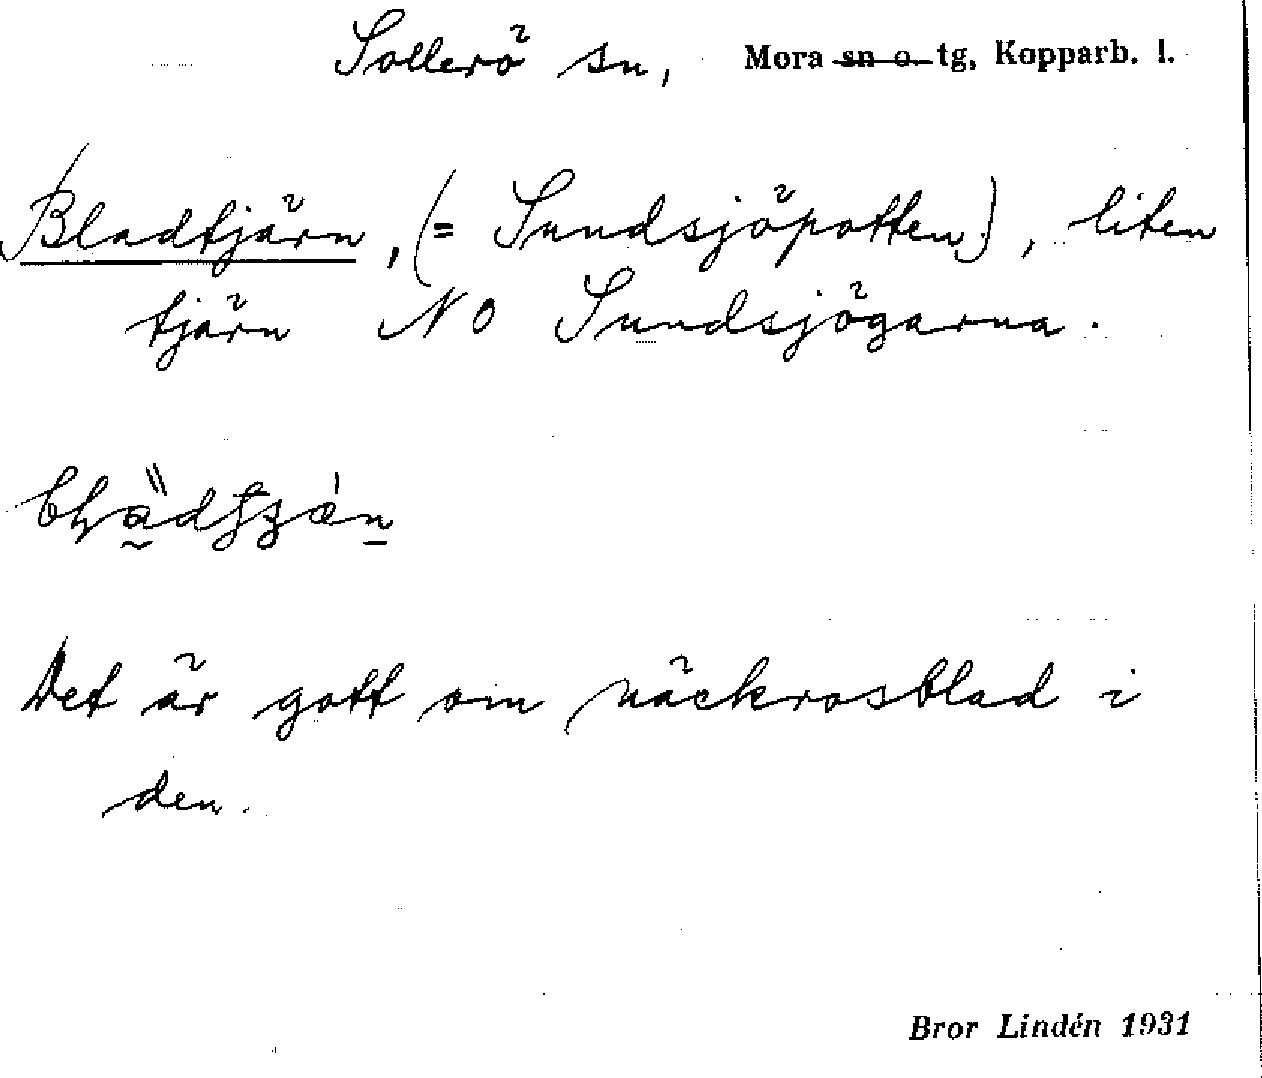 Sollerö sn, Mora ~~sn o.~~ tg, Kopparb. l.
Bladtjärn, (= Sundsjöpotten), liten
tjärn NO Sundsjögarna.
Det är gott om näckrosblad i
den.
Bror Lindén 1931